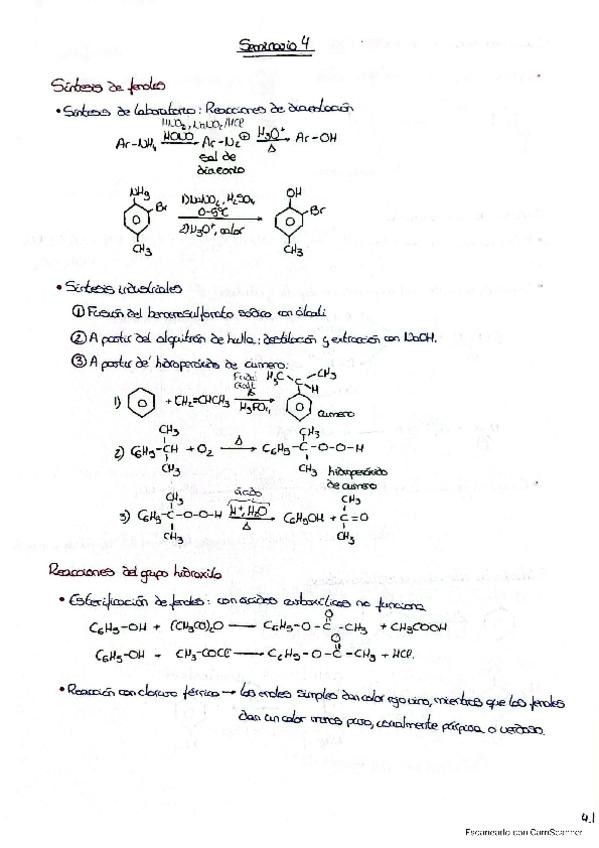 Seminario 4
Síntesis de fenoles
• Síntesis de laboratorio: Reacciones de diazotación
HNO2, NaNO2/HCl
Ar-NH2 HONO Ar-N2⊕ H3O+ Δ Ar-OH
sal de
diazonio
NH2 Br CH3 1) NaNO2, H2SO4 0-5ºC 2) H3O+, calor OH Br CH3
• Síntesis industriales
① Fusión del bencenosulfonato sódico con álcali
② A partir del alquitrán de hulla: destilación y extracción con NaOH.
③ A partir del hidroperóxido de cumeno:
1) + CH2=CHCH3 H3PO4 H3C C CH3 H cumeno
2) C6H5-CH + O2 Δ C6H5-C-O-O-H
CH3 CH3 CH3 CH3 hidroperóxido
de cumeno
ácido
3) C6H5-C-O-O-H H+, H2O Δ C6H5OH + C=O
CH3 CH3 CH3 CH3
Reacciones del grupo hidroxilo
• Esterificación de fenoles: con ácidos carboxílicos no funciona
C6H5-OH + (CH3CO)2O C6H5-O-C-CH3 + CH3COOH
O
C6H5-OH + CH3-COCl C6H5-O-C-CH3 + HCl.
O
• Reacción con cloruro férrico → los enoles simples dan color rojo vino, mientras que los fenoles
dan un color menos puro, usualmente púrpura o verdoso.
4.1
Escaneado con CamScanner